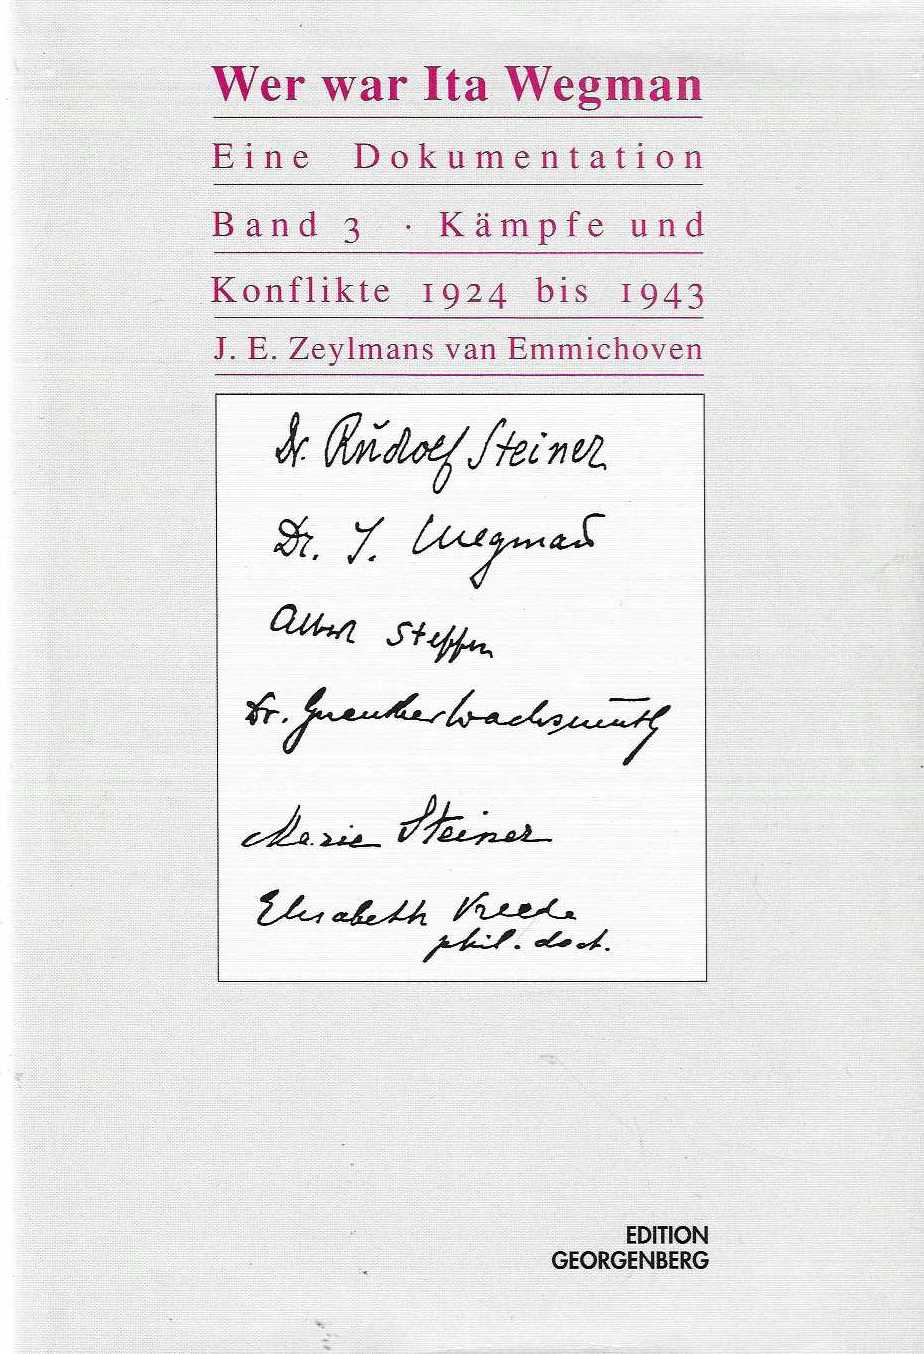 Wer war Ita Wegman
Eine Dokumentation
Band 3 · Kämpfe und
Konflikte 1924 bis 1943
J. E. Zeylmans van Emmichoven
Dr. Rudolf Steiner
Dr. I. Wegman
Albert Steffen
Dr. Guenther Wachsmuth
Marie Steiner
Elisabeth Vreede
phil. doct.
EDITION
GEORGENBERG